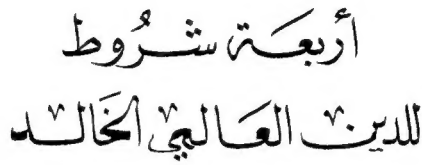 أربعة شروط
للدين العالمي الخالد